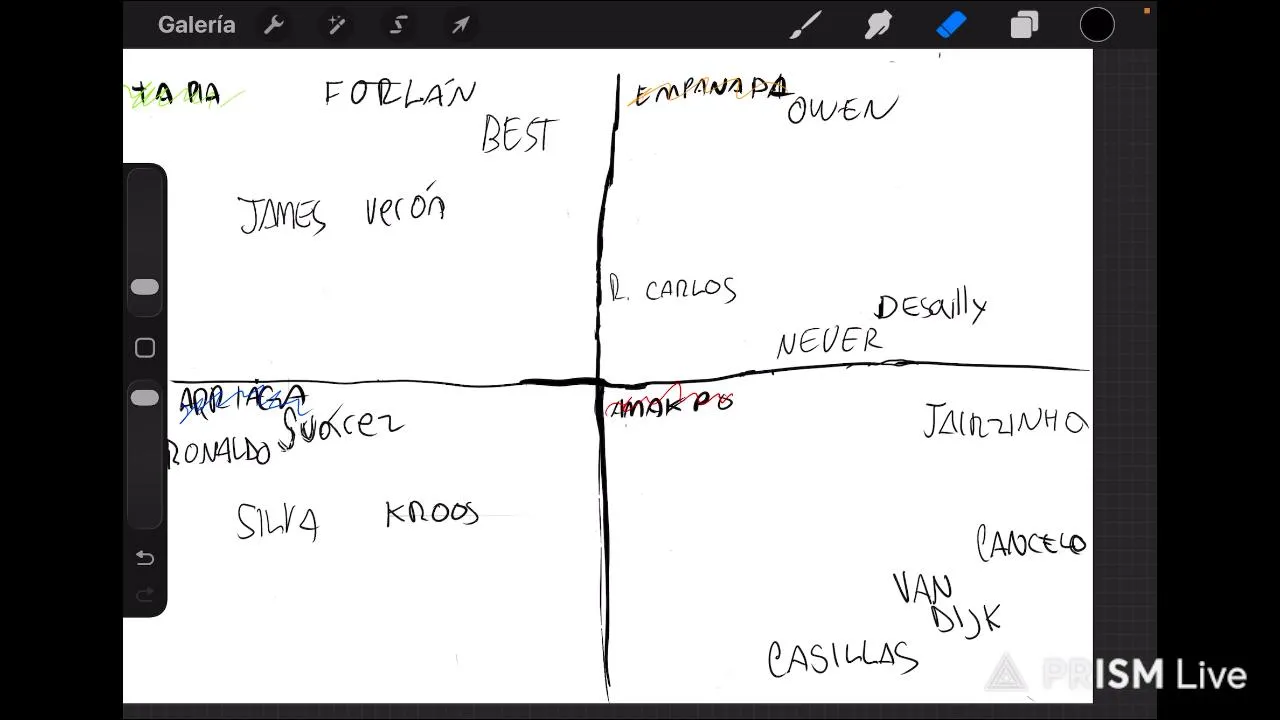 Galería
TAPIA
FORLÁN
BEST
JAMES
verón
EMPANADA
OWEN
R. CARLOS
DESailly
NEVER
ARRIAGA
Suárez
RONALDO
SILVA
KROOS
AMAKPO
JAIRZINHO
CANCELO
VAN
DIJK
CASILLAS
PRISM Live